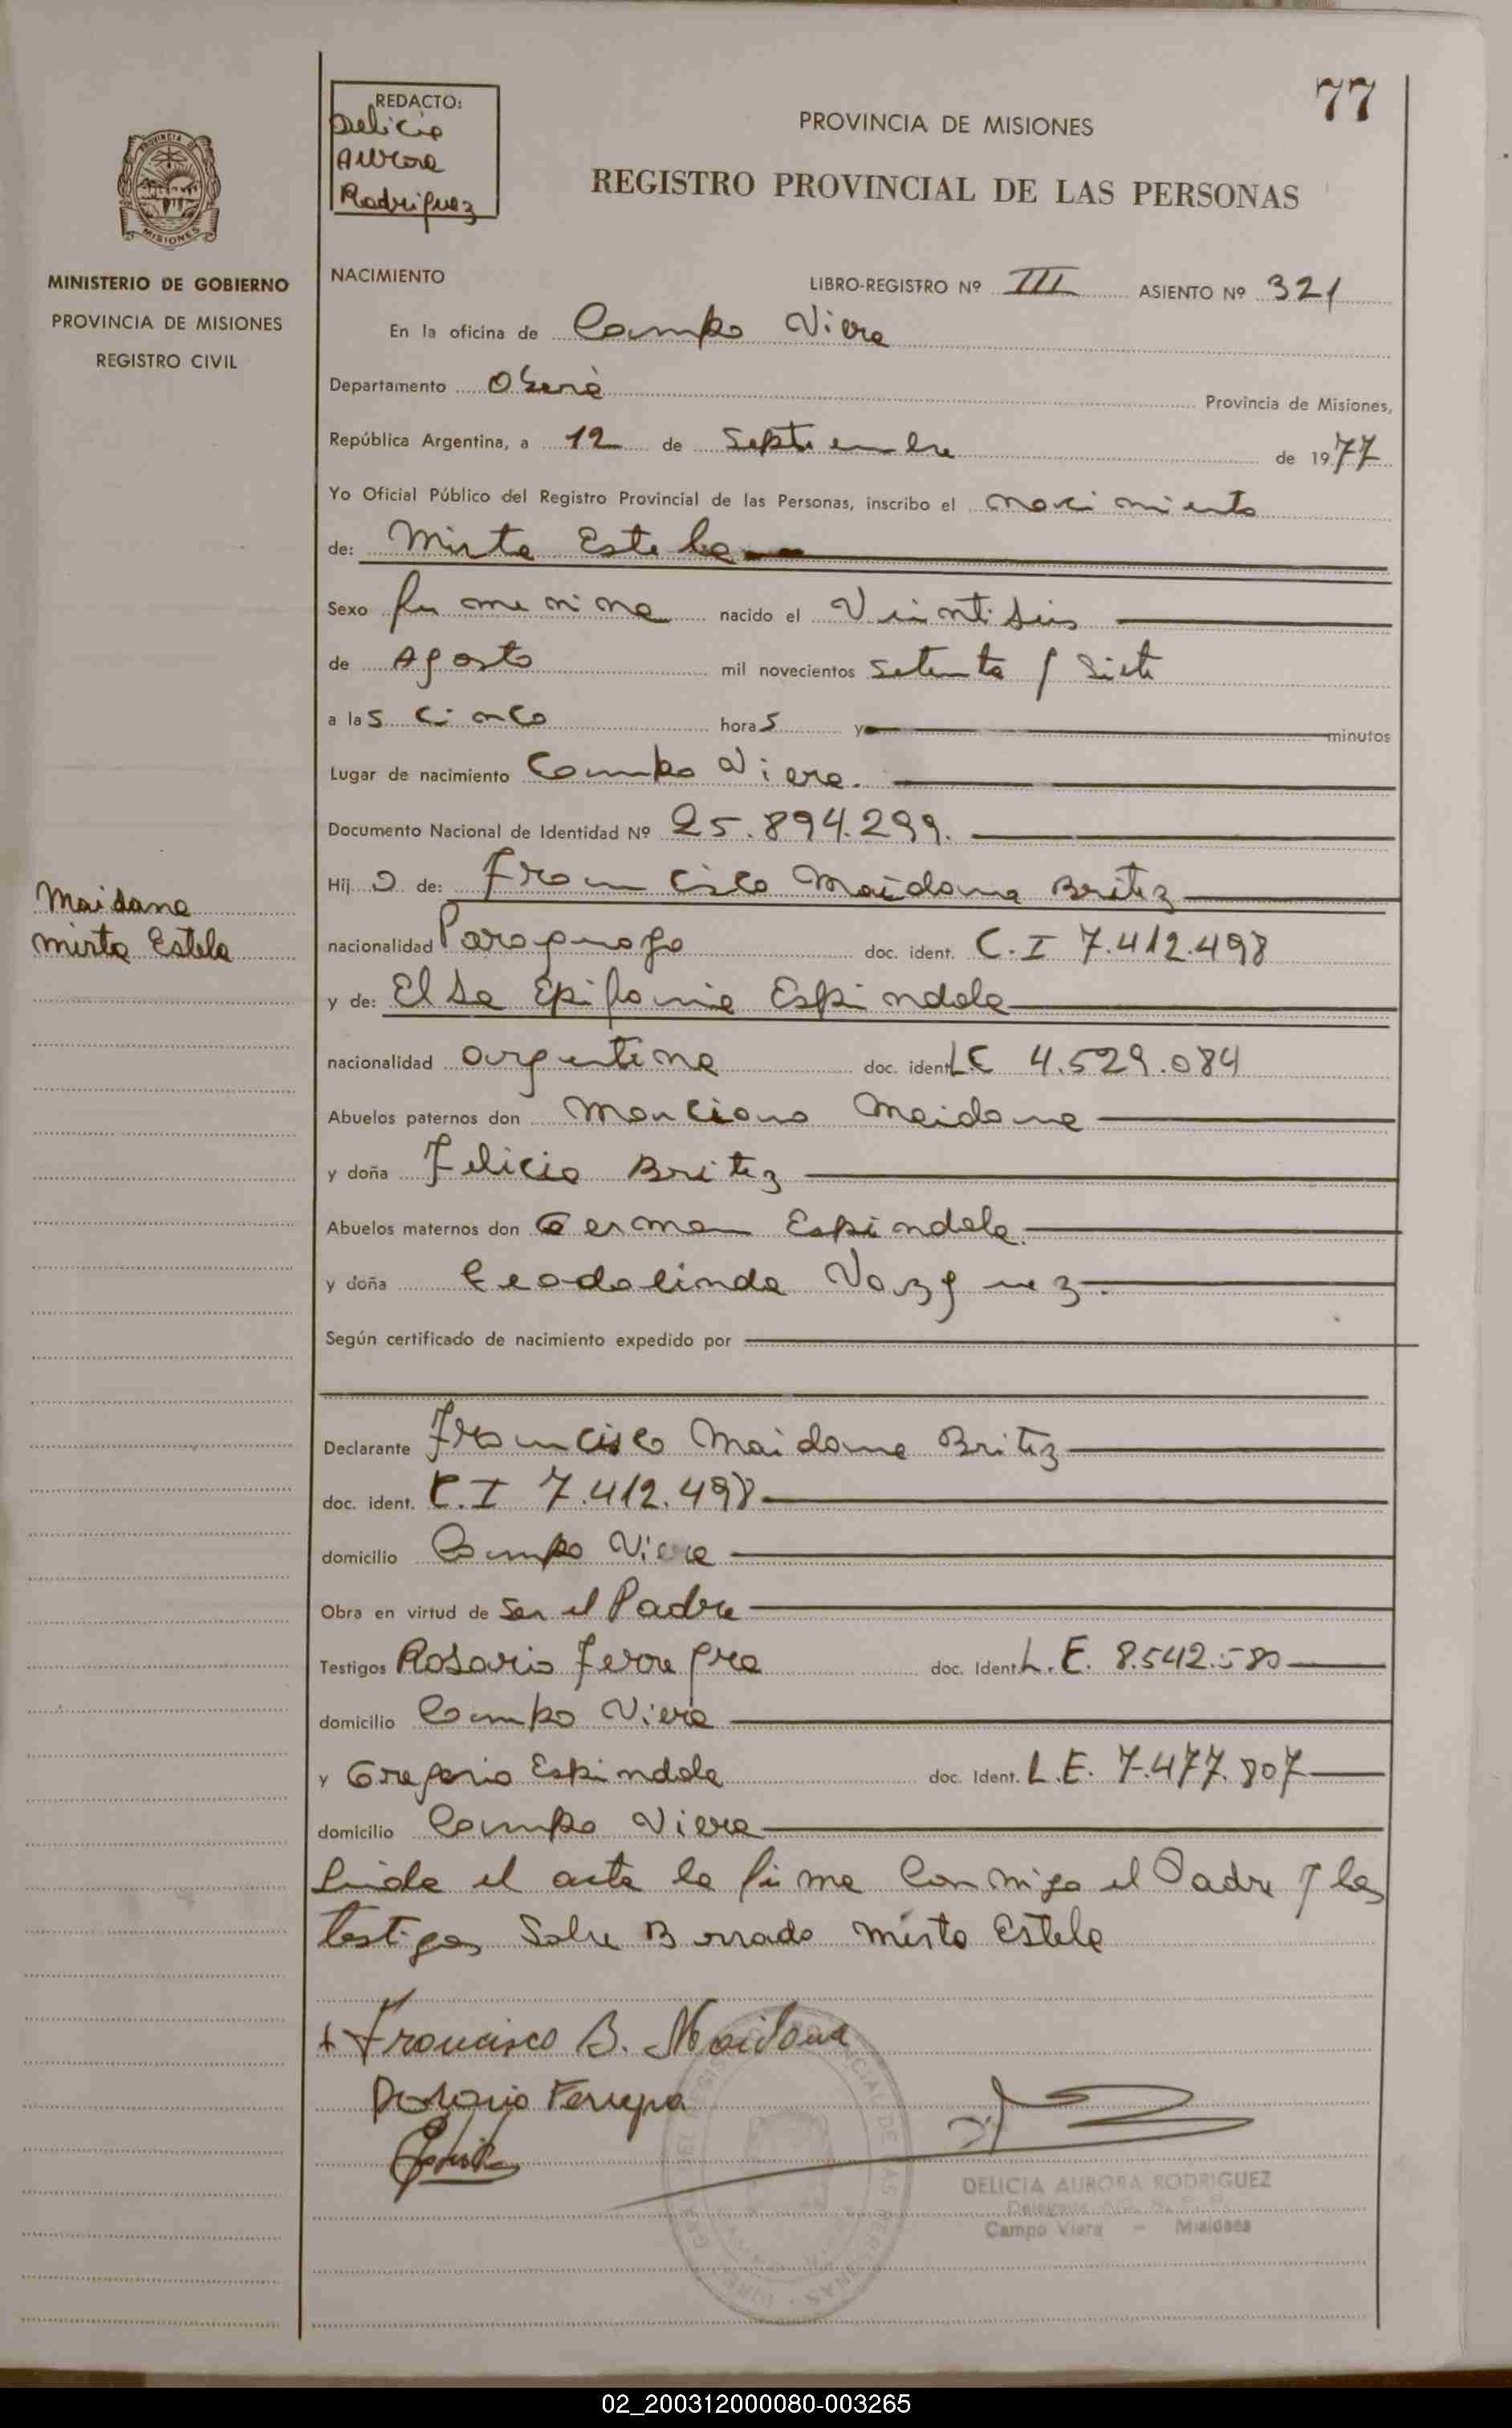 77
REDACTO:
Delicia
Aurora
Rodriguez
PROVINCIA DE MISIONES
REGISTRO PROVINCIAL DE LAS PERSONAS
PROVINCIA DE
MISIONES
MINISTERIO DE GOBIERNO
PROVINCIA DE MISIONES
REGISTRO CIVIL
NACIMIENTO LIBRO-REGISTRO Nº III ASIENTO Nº 321
En la oficina de Campo Viera
Departamento Oberà Provincia de Misiones,
República Argentina, a 12 de Septiembre de 1977
Yo Oficial Público del Registro Provincial de las Personas, inscribo el nacimiento
de: Mirta Estela
Sexo femenina nacido el Veintiseis
de Agosto mil novecientos setenta y siete
a las cinco horas y minutos
Lugar de nacimiento Campo Viera.
Documento Nacional de Identidad Nº 25.894.299.
Maidana
Mirta Estela
Hij a de: Francisco Maidana Britez
nacionalidad Paraguayo doc. ident. C.I 7.412.498
y de: Elsa Epifania Espindola
nacionalidad argentina doc. ident LC 4.529.084
Abuelos paternos don Marciano Maidana
y doña Felicia Britez
Abuelos maternos don German Espindola.
y doña Teodolinda Vazquez.
Según certificado de nacimiento expedido por
Declarante Francisco Maidana Britez
doc. ident. C.I 7.412.498
domicilio Campo Viera
Obra en virtud de Ser el Padre
Testigos Rosario Ferreyra doc. Ident. L.E. 8.542.580
domicilio Campo Viera
y Gregorio Espindola doc. Ident. L.E. 7.477.807
domicilio Campo Viera
Leida el acta la firma conmigo el Padre y los
testigos Sobre Borrado Mirta Estela
Francisco B. Maidana
Rosario Ferreyra
DELICIA AURORA RODRIGUEZ
Delegada
Campo Viera - Misiones
02_200312000080-003265